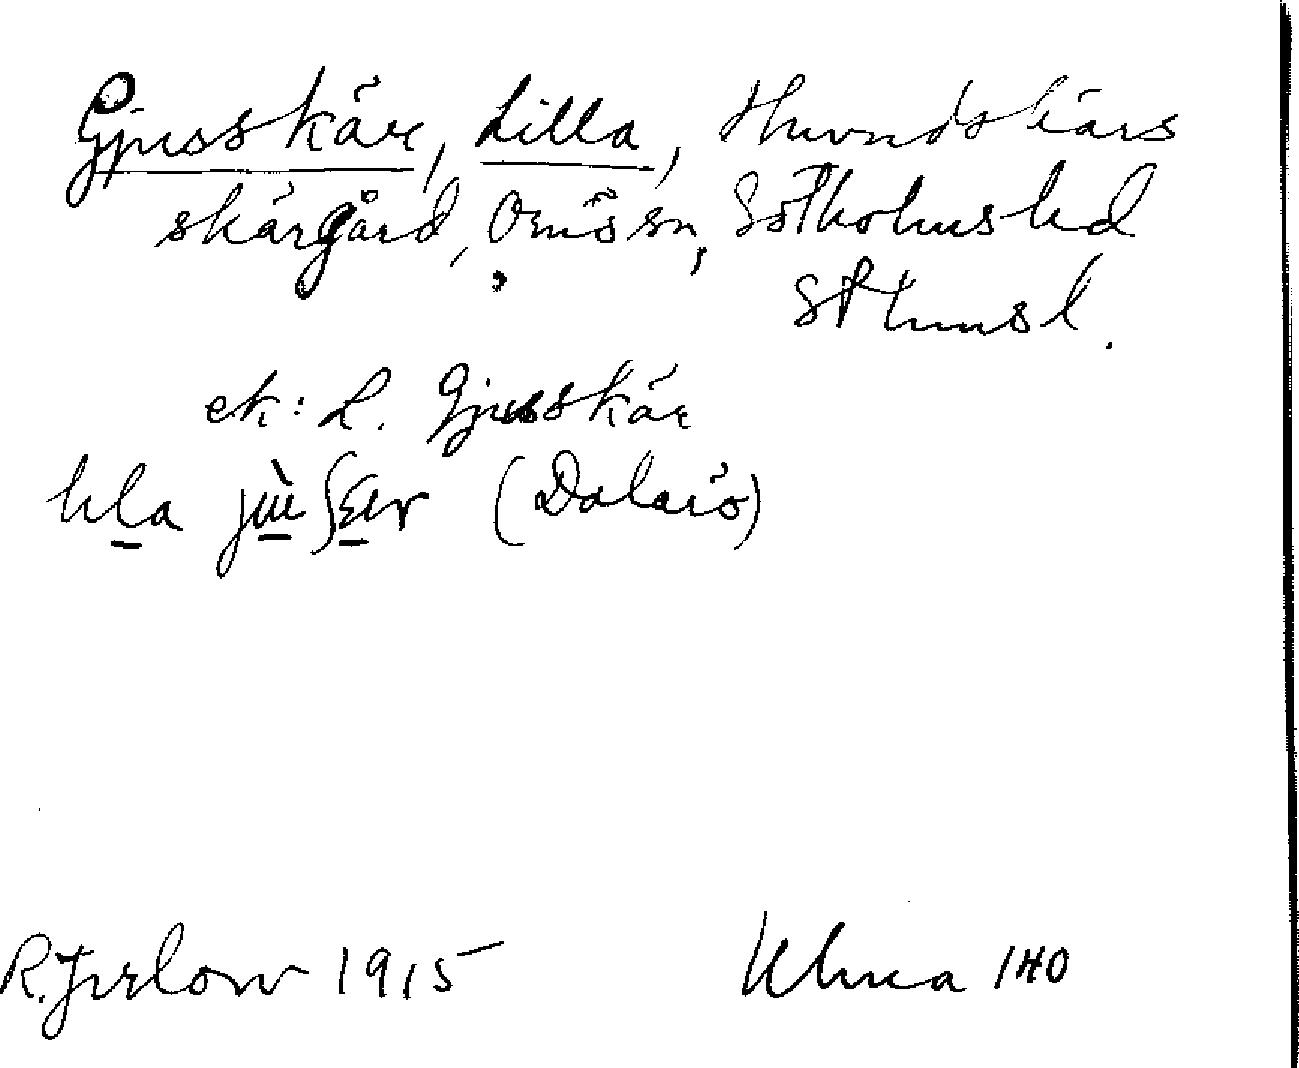 Gjusskär, Lilla, Hundskärs
skärgård, Ornö sn, Sotholms hd
Sthmsl.
ek: L. Gjusskär
(Dalarö)
R. Jirlow 1915 Ulma 140